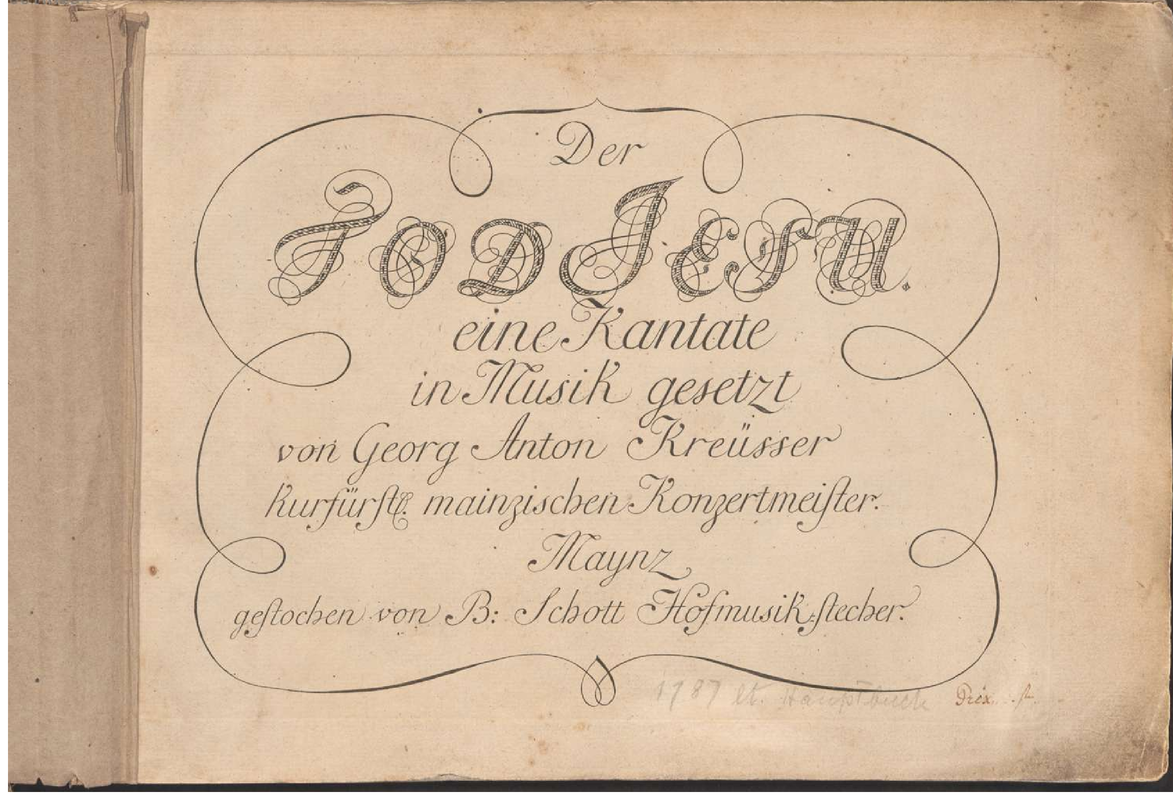 Der
TOD JESU.
eine Kantate
in Musik gesetzt
von Georg Anton Kreüsser
kurfürstl. mainzischen Konzertmeister.
Maynz
gestochen von B: Schott Hofmusik:stecher.
1787 lt. Hauptbuch
Prix